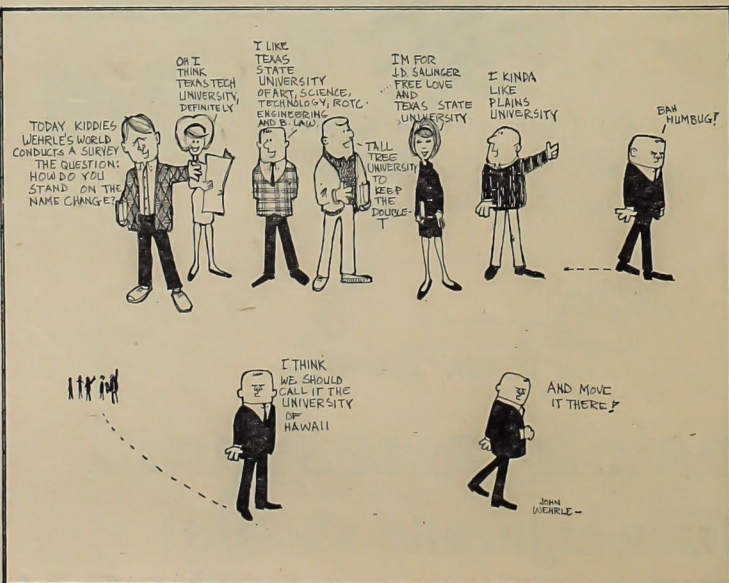 TODAY KIDDIES
WEHRLE'S WORLD
CONDUCTS A SURVEY
THE QUESTION:
HOW DO YOU
STAND ON THE
NAME CHANGE?
OH I
THINK
TEXAS TECH
UNIVERSITY,
DEFINITELY
I LIKE
TEXAS
STATE
UNIVERSITY
OF ART, SCIENCE,
TECHNOLOGY, ROTC.
ENGINEERING
AND B. LAW.
TALL
TREE
UNIVERSITY
TO
KEEP
THE
DOUBLE-
T
IM FOR
J.D. SALINGER
FREE LOVE
AND
TEXAS STATE
UNIVERSITY
I KINDA
LIKE
PLAINS
UNIVERSITY
BAH
HUMBUG!
I THINK
WE SHOULD
CALL IT THE
UNIVERSITY
OF
HAWAII
AND MOVE
IT THERE!
JOHN
WEHRLE-